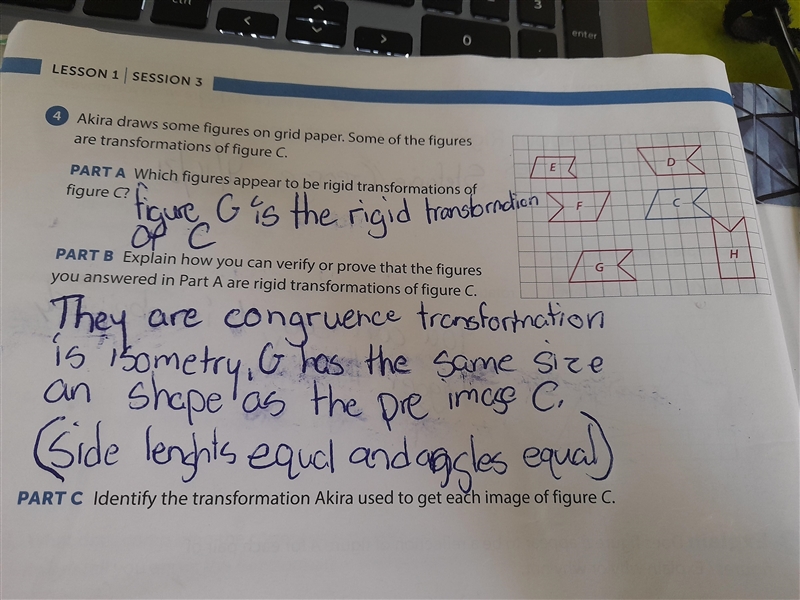 enter
3
0
<
>
LESSON 1 | SESSION 3
4 Akira draws some figures on grid paper. Some of the figures
are transformations of figure C.
PART A Which figures appear to be rigid transformations of
figure C?
figure G is the rigid transformation
of C
E
D
F
C
G
H
PART B Explain how you can verify or prove that the figures
you answered in Part A are rigid transformations of figure C.
They are congruence transformation
is isometry, G has the same size
an shape as the pre image C.
(side lenghts equal and angles equal)
PART C Identify the transformation Akira used to get each image of figure C.